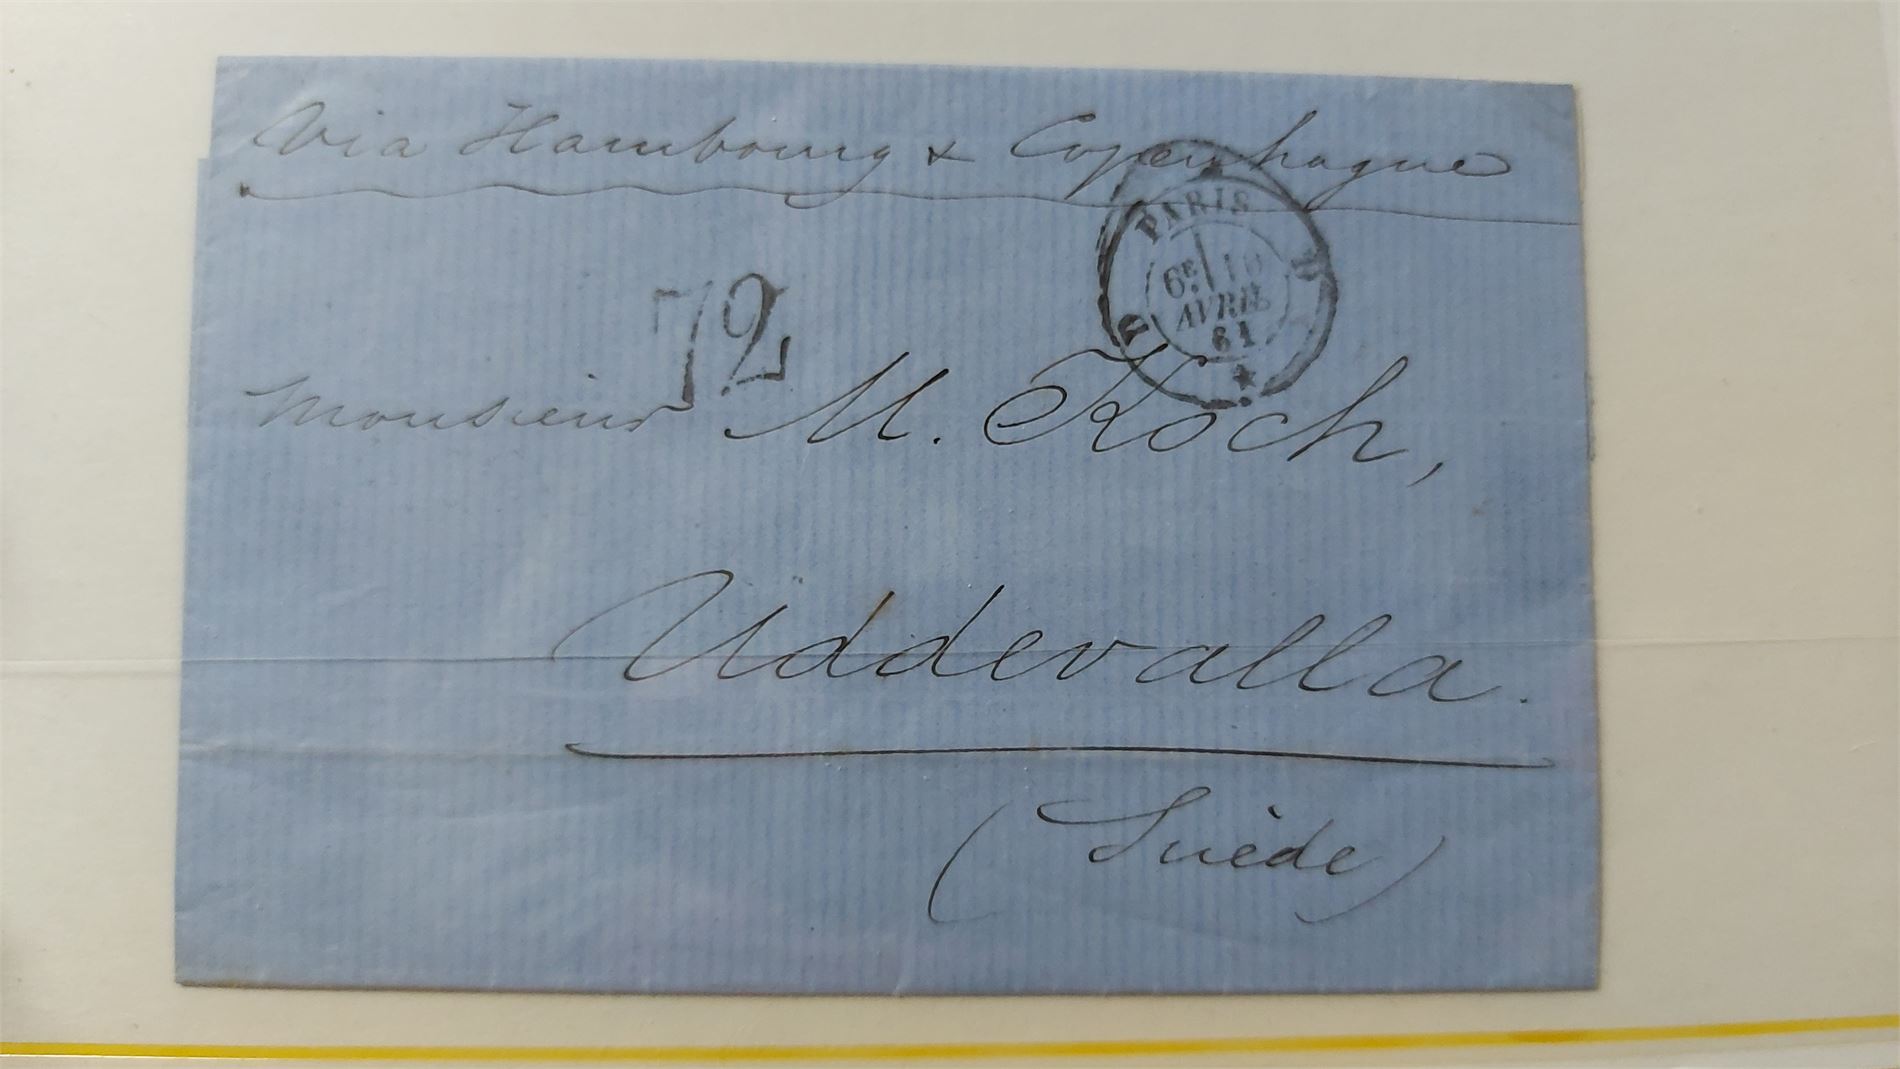 Via Hambourg & Copenhague
PARIS
6E 10
AVRIL
61
D D
72
Monsieur M. Koch,
Uddevalla.
(Suède)